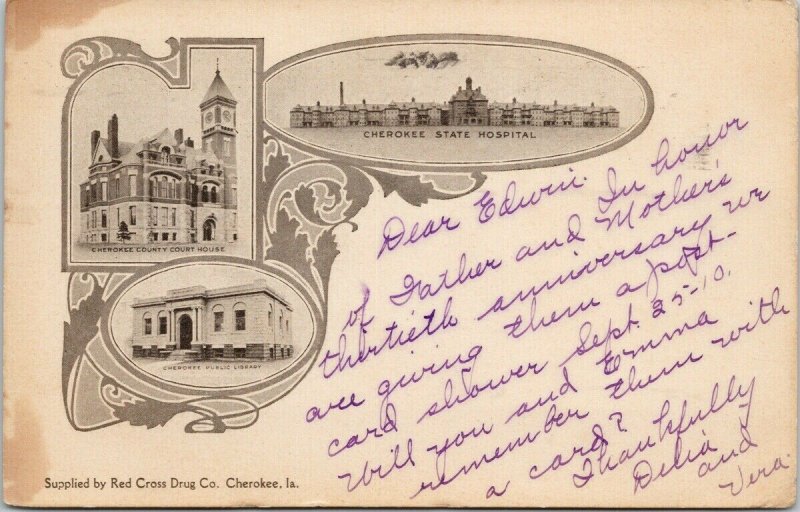 CHEROKEE STATE HOSPITAL
CHEROKEE COUNTY COURT HOUSE
CHEROKEE PUBLIC LIBRARY
Dear Edwin. In honor
of Father and Mother's
thirtieth anniversary we
are giving them a post-
card shower Sept. 25-10.
Will you and Emma
remember them with
a card? Thankfully
Delia
and
Vera.
Supplied by Red Cross Drug Co. Cherokee, Ia.